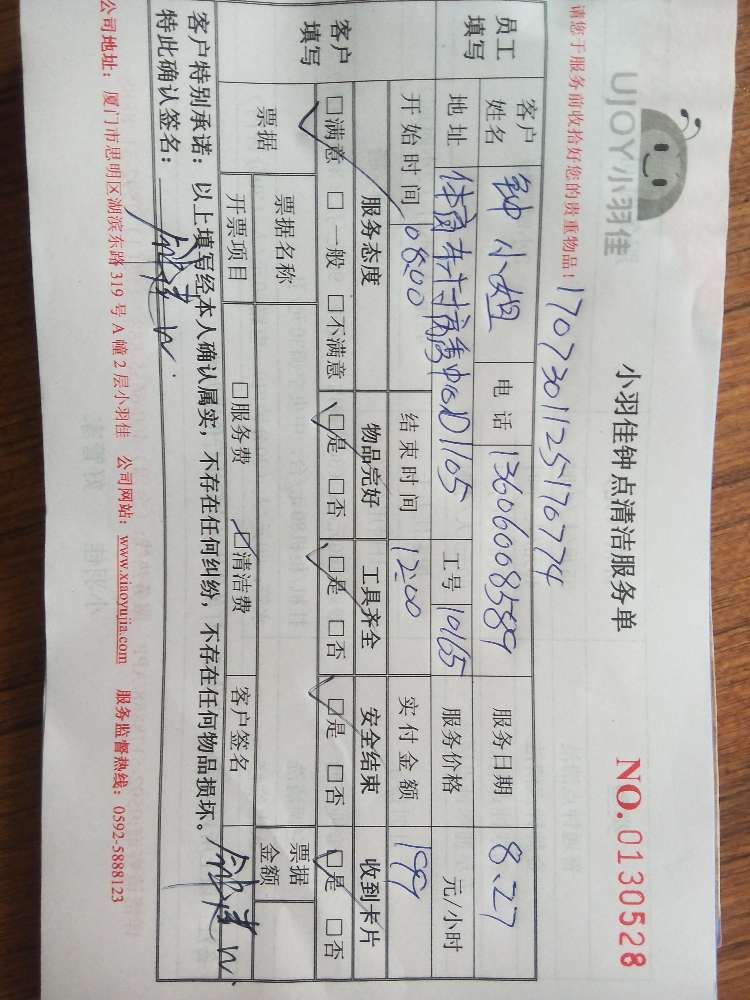 UJOY小羽佳
小羽佳钟点清洁服务单
NO. 0130528
请您于服务前收拾好您的贵重物品！
1707301125170774
员工填写
客户姓名 钟小姐 电话 13606008589 服务日期 8.27
地址 体育东村 D1105 工号 10165 服务价格 元/小时
开始时间 08:00 结束时间 12:00 实付金额 199
客户填写
服务态度 物品完好 工具齐全 安全结束 收到卡片
□满意 □一般 □不满意 □是 □否 □是 □否 □是 □否 □是 □否
票据 票据名称 票据金额
开票项目 □服务费 □清洁费 客户签名
客户特别承诺：以上填写经本人确认属实，不存在任何纠纷，不存在任何物品损坏。
特此确认签名：
公司地址：厦门市思明区湖滨东路 319 号 A 幢 2 层小羽佳 公司网站：www.xiaoyujia.com 服务监督热线：0592-5888123